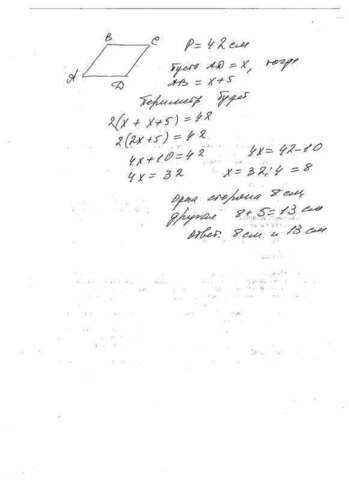 B C
A D
P = 42 см
Пусть AD = x, тогда
AB = x+5
Периметр будет
2(x + x+5) = 42
2(2x+5) = 42
4x+10 = 42 4x = 42-10
4x = 32 x = 32:4 = 8
одна сторона 8 см,
другая 8+5=13 см
ответ: 8 см и 13 см